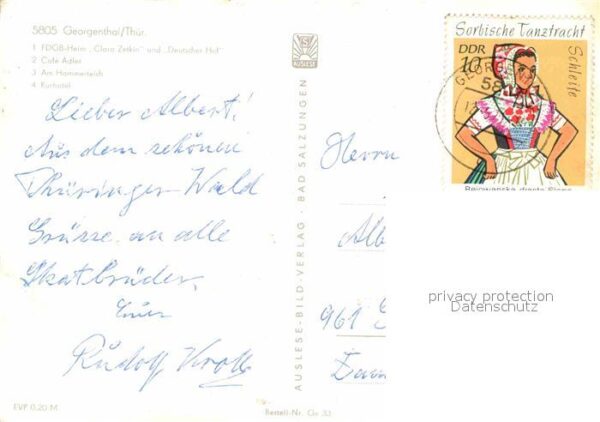 5805 Georgenthal/Thür.
1 FDGB-Heim „Clara Zetkin" und „Deutscher Hof"
2 Cafe Adler
3 Am Hammerteich
4 Kurhotel
Lieber Albert!
Aus dem schönen
Thüringer Wald
Grüsse an alle
Skatbrüder.
Euer
Rudolf
EVP 0,20 M
AUSLESE
AUSLESE-BILD-VERLAG · BAD SALZUNGEN
Bestell-Nr. Go 33
Sorbische Tanztracht
DDR
10
Schleife
GEORG
58
Herrn
Alb
961
privacy protection
Datenschutz